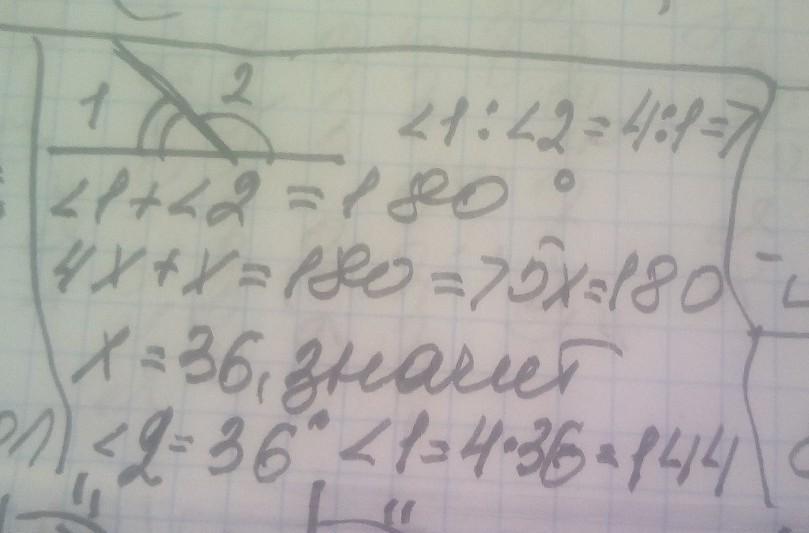 1 2
<1:<2=4:1=>
<1+<2=180°
4x+x=180=>5x=180
x=36, значит
<2=36° <1=4·36=144